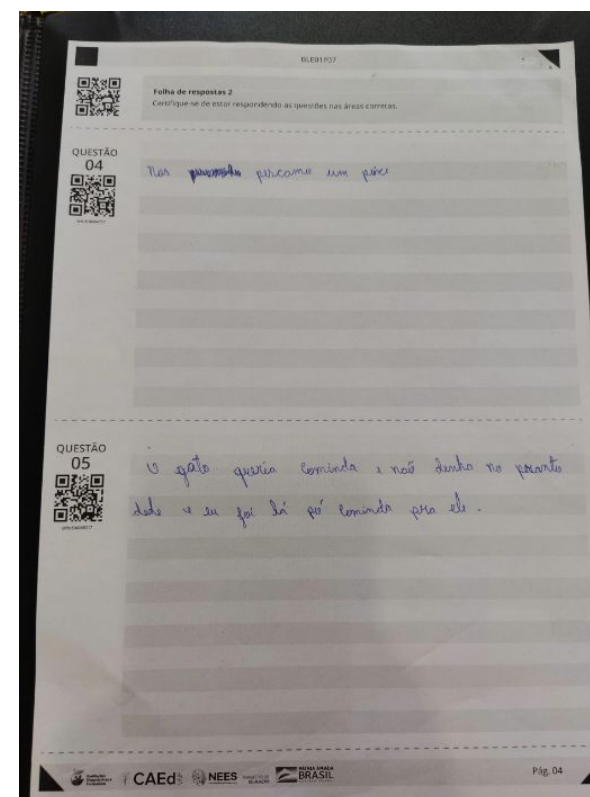 BLE01F07
Folha de respostas 2
Certifique-se de estar respondendo as questões nas áreas corretas.
QUESTÃO
04
Nas percamo um pexe
QUESTÃO
05
O gato queria cominda e naõ dinha no pranto
dede e eu foi lá pió cominda pra ele.
CAEd NEES PÁTRIA AMADA BRASIL
Pág. 04